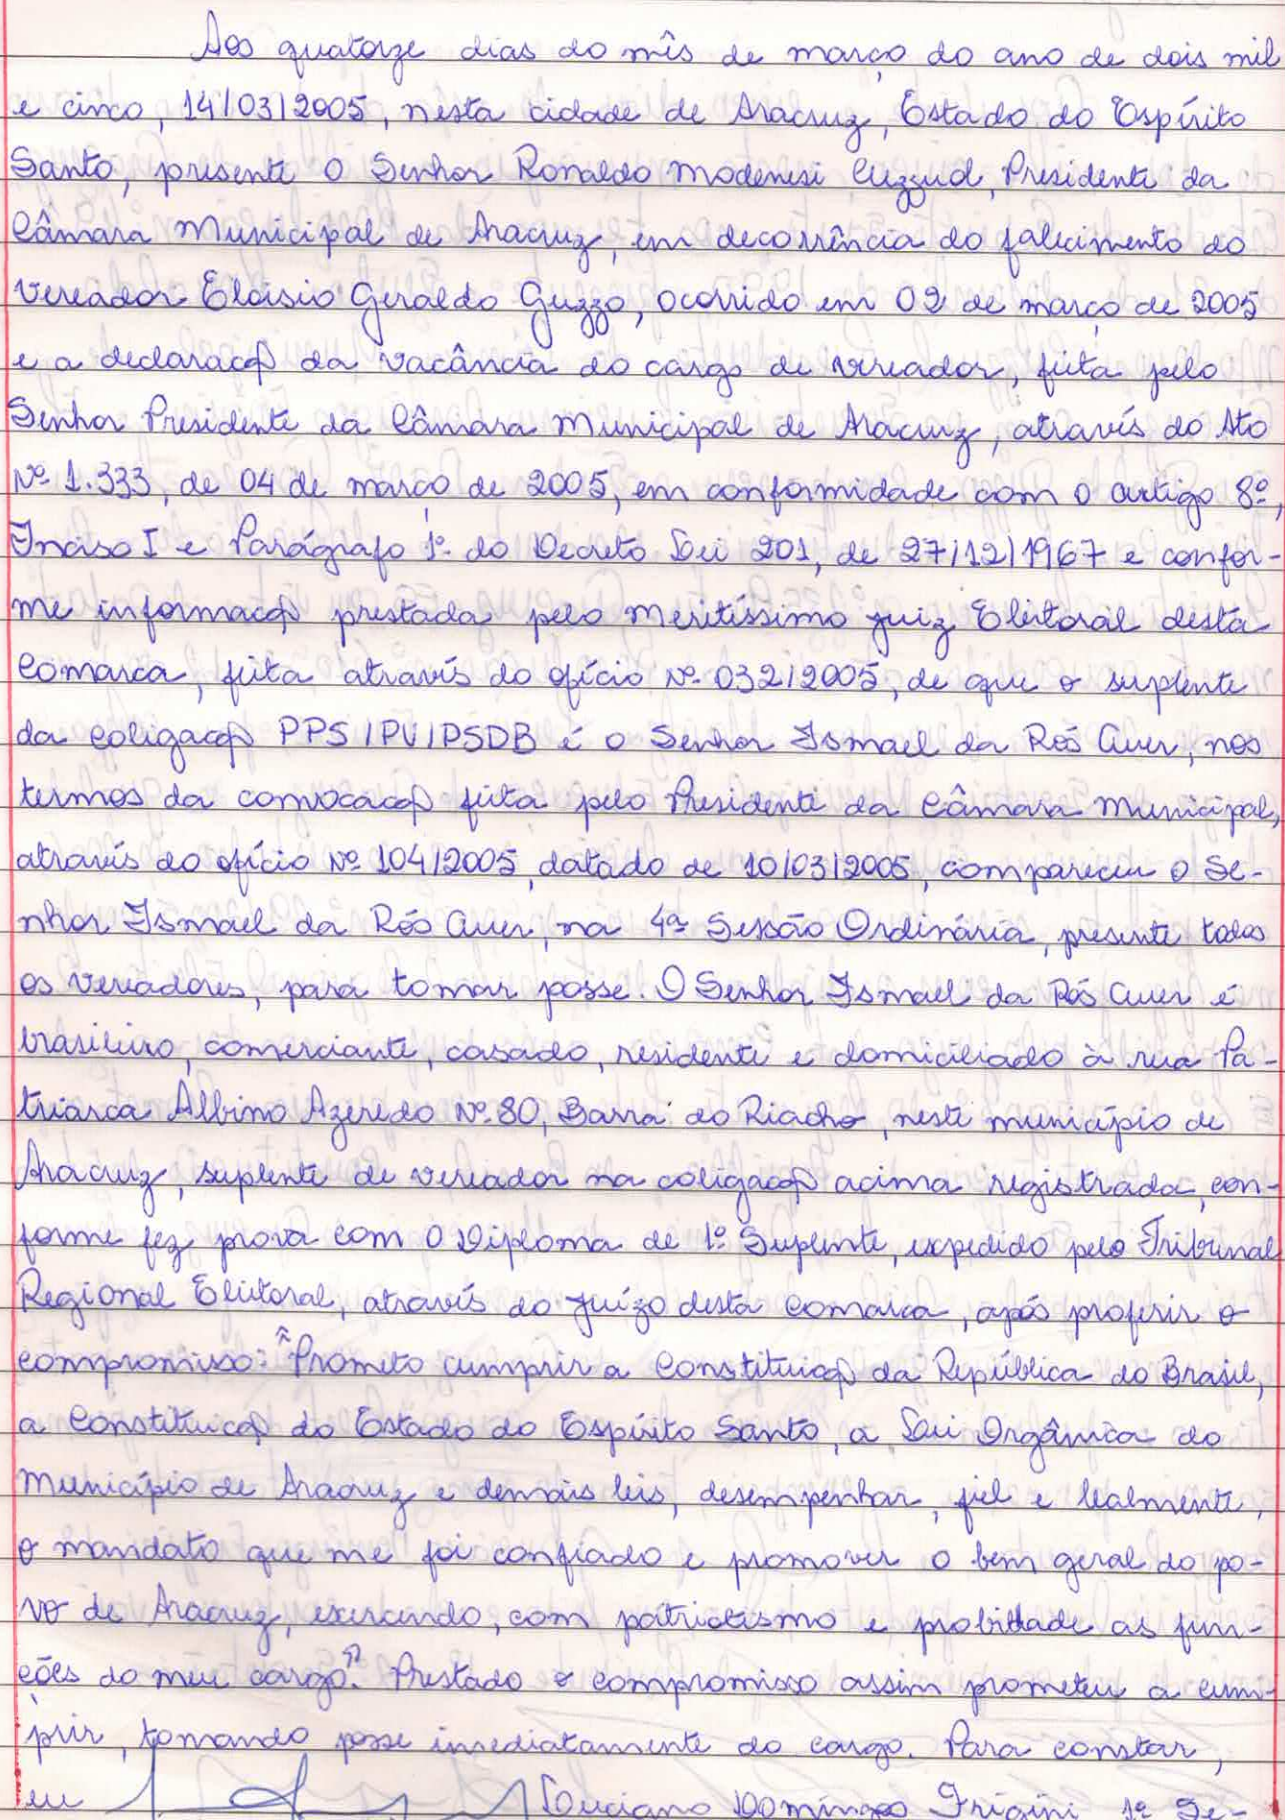 Aos quatorze dias do mês de março do ano de dois mil
e cinco, 14/03/2005, nesta cidade de Aracruz, Estado do Espírito
Santo, presente o Senhor Ronaldo Modenesi Cuzzuol, Presidente da
Câmara Municipal de Aracruz, em decorrência do falecimento do
vereador Eloisio Geraldo Guzzo, ocorrido em 02 de março de 2005
e a declaração da vacância do cargo de vereador, feita pelo
Senhor Presidente da Câmara Municipal de Aracruz, através do Ato
Nº 1.333, de 04 de março de 2005, em conformidade com o artigo 8º,
Inciso I e Parágrafo 1º do Decreto Lei 201, de 27/12/1967 e confor-
me informação prestada pelo Meritíssimo Juiz Eleitoral desta
Comarca, feita através do ofício Nº 032/2005, de que o suplente
da coligação PPS/PV/PSDB é o Senhor Ismael da Rós Auer, nos
termos da convocação feita pelo Presidente da Câmara Municipal,
através do ofício Nº 104/2005, datado de 10/03/2005, compareceu o Se-
nhor Ismael da Rós Auer, na 4ª Sessão Ordinária, presente todos
os vereadores, para tomar posse. O Senhor Ismael da Rós Auer é
brasileiro, comerciante, casado, residente e domiciliado à rua Pa-
triarca Albino Azeredo Nº 80, Barra do Riacho, neste município de
Aracruz, suplente de vereador na coligação acima registrada, con-
forme fez prova com o Diploma de 1º Suplente, expedido pelo Tribunal
Regional Eleitoral, através do juízo desta comarca, após proferir o
compromisso: "Prometo cumprir a Constituição da República do Brasil,
a Constituição do Estado do Espírito Santo, a Lei Orgânica do
Município de Aracruz e demais leis, desempenhar, fiel e lealmente,
o mandato que me foi confiado e promover o bem geral do po-
vo de Aracruz, exercendo, com patriotismo e probidade as fun-
ções do meu cargo". Prestado o compromisso assim prometeu a cum-
prir, tomando posse imediatamente do cargo. Para constar,
eu Luciano Domingos Frigini 1º Se-